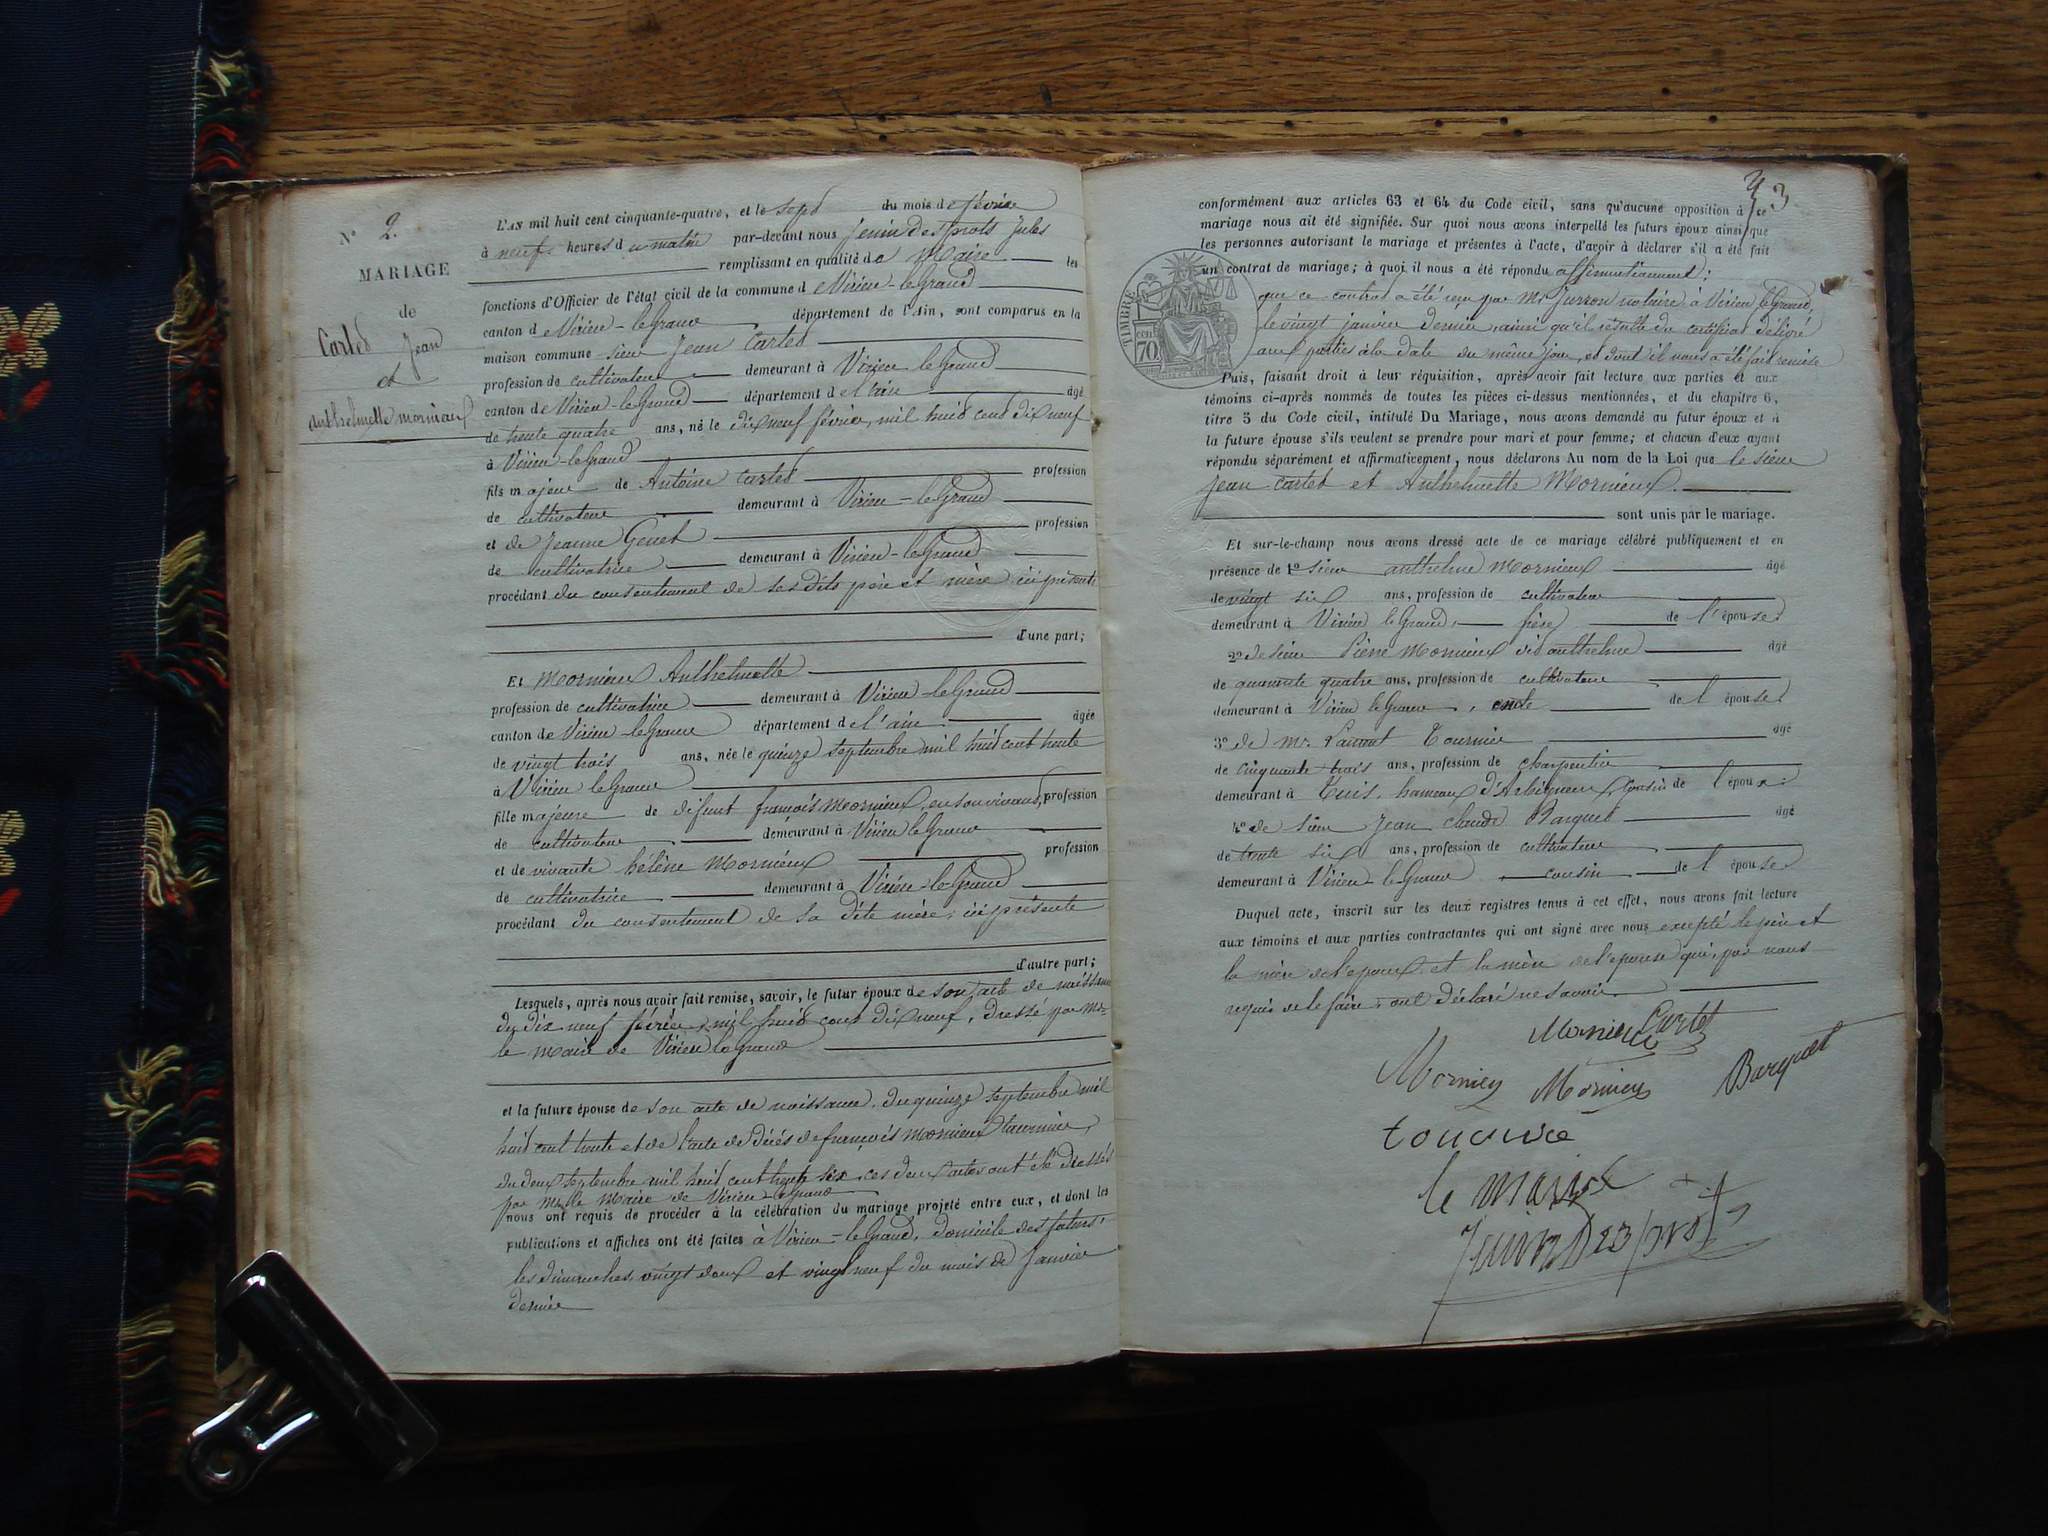 No 2.
MARIAGE
de
Cartet Jean
et
Anthelmette mornieux
L'AN mil huit cent cinquante-quatre, et le sept du mois de février
à neufs heures du matin par-devant nous Jenin Desprots Jules
remplissant en qualité de Maire les
fonctions d'Officier de l'état civil de la commune de Virieu-le-Grand
canton de Virieu-le-Grand département de l'Ain, sont comparus en la
maison commune sieur Jean Cartet
profession de cultivateur demeurant à Virieu le Grand
canton de Virieu-le-Grand département de l'ain âgé
de trente quatre ans, né le dix neuf février, mil huit cent dix neuf
à Virieu-le-Grand
fils majeur de Antoine Cartet profession
de cultivateur demeurant à Virieu-le-Grand
et de Jeanne Genet profession
de cultivatrice demeurant à Virieu-le-Grand
procédant du consentement de ses dits père et mère ici présents
d'une part;
Et Mornieux Anthelmette
profession de cultivatrice demeurant à Virieu-le-Grand
canton de Virieu-le-Grand département de l'ain âgée
de vingt trois ans, née le quinze septembre mil huit cent trente
à Virieu le Grand
fille majeure de défunt françois Mornieux, en son vivant, profession
de cultivateur demeurant à Virieu le Grand
et de vivante hélène Mornieux profession
de cultivatrice demeurant à Virieu-le-Grand
procédant du consentement de sa dite mère ici présente
d'autre part;
Lesquels, après nous avoir fait remise, savoir, le futur époux de son acte de naissance
du dix-neuf février, mil huit cent dix neuf, dressé par Mr.
le maire de Virieu le Grand
et la future épouse de son acte de naissance, du quinze septembre mil
huit cent trente et de l'acte de décès de françois Mornieux
du deux septembre mil huit cent trente six, ces deux actes ont été dressés
par Mr le Maire de Virieu-le-Grand
nous ont requis de procéder à la célébration du mariage projeté entre eux, et dont les
publications et affiches ont été faites à Virieu-le-Grand, domicile des futurs,
les dimanches vingt deux et vingt neuf du mois de Janvier
dernier
3
conformément aux articles 63 et 64 du Code civil, sans qu'aucune opposition à ce
mariage nous ait été signifiée. Sur quoi nous avons interpellé les futurs époux ainsi que
les personnes autorisant le mariage et présentes à l'acte, d'avoir à déclarer s'il a été fait
un contrat de mariage; à quoi il nous a été répondu affirmativement;
TIMBRE
cent
70
que ce contrat a été reçu par Mr notaire à Virieu le Grand,
le vingt janvier dernier, ainsi qu'il résulte du certificat délivré
aux parties à la date du même jour, et dont il nous a été fait remise
Puis, faisant droit à leur réquisition, après avoir fait lecture aux parties et aux
témoins ci-après nommés de toutes les pièces ci-dessus mentionnées, et du chapitre 6,
titre 5 du Code civil, intitulé Du Mariage, nous avons demandé au futur époux et à
la future épouse s'ils veulent se prendre pour mari et pour femme; et chacun d'eux ayant
répondu séparément et affirmativement, nous déclarons Au nom de la Loi que le sieur
Jean Cartet et Anthelmette Mornieux.
sont unis par le mariage.
Et sur-le-champ nous avons dressé acte de ce mariage célébré publiquement et en
présence de 1º sieur anthelme Mornieux âgé
de vingt six ans, profession de cultivateur
demeurant à Virieu le Grand, frère de l'épouse
2º de sieur Pierre Mornieux dit anthelme âgé
de quarante quatre ans, profession de cultivateur
demeurant à Virieu le Grand, oncle de l'épouse
3º de Mr. Laurent Tournier âgé
de cinquante trois ans, profession de charpentier
demeurant à Cuis, hameau d'Arbignieux, cousin de l'époux
4º de sieur Jean claude Barquet âgé
de trente six ans, profession de cultivateur
demeurant à Virieu-le-Grand cousin de l'épouse
Duquel acte, inscrit sur les deux registres tenus à cet effet, nous avons fait lecture
aux témoins et aux parties contractantes qui ont signé avec nous excepté le père et
la mère de l'époux et la mère de l'épouse qui, par nous
requis de le faire, ont déclaré ne savoir.
Mornieux Cartet
Mornieu Mornieux Barquet
le maire